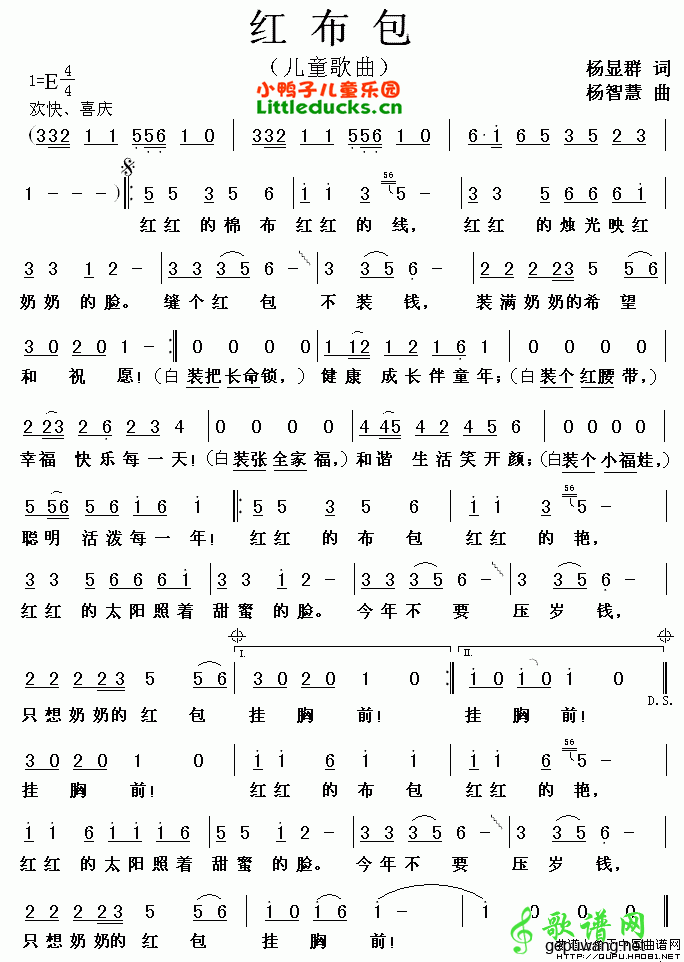 红布包
（儿童歌曲）
1=E 4/4
杨显群 词
小鸭子儿童乐园
杨智慧 曲
欢快、喜庆
Littleducks.cn
(332 1 1 556 1 0 | 332 1 1 556 1 0 | 6· i 6 5 3 5 2 3 |
1 - - - ) 5 5 3 5 6 | i i 3 56 5 - | 3 3 5 6 6 6 i |
红红 的棉 布 红红 的 线， 红红 的烛光映红
3 3 1 2 - | 3 3 3 5 6 | 3 3 5 6 - | 2 2 2 23 5 56 |
奶奶 的脸。 缝个红 包 不 装 钱， 装满奶奶的希 望
3 0 2 0 1 - :| 0 0 0 0 | 1 12 2 1 2 1 6 1 | 0 0 0 0 |
和 祝 愿！（白 装把长命锁，） 健康 成长伴童年；（白装个红腰带，）
2 23 2 6 2 3 4 | 0 0 0 0 | 4 45 4 2 4 5 6 | 0 0 0 0 |
幸福 快乐每一天！（白装张全家 福，）和谐 生活笑开颜；（白装个小福娃，）
5 56 5 6 i 6 i | 5 5 3 5 6 | i i 3 56 5 - |
聪明 活泼每一 年！ 红红 的 布 包 红红 的 艳，
3 3 5 6 6 6 i | 3 3 1 2 - | 3 3 3 5 6 | 3 3 5 6 - |
红红 的太阳照着 甜蜜 的脸。今年不 要 压岁 钱，
I. II.
2 2 2 23 5 56 | 3 0 2 0 1 0 :| i 0 i 0 i 0 ||
D.S.
只想奶奶的红 包 挂 胸 前！ 挂 胸前！
3 0 2 0 i 0 | i i 6 i 2 | i i 3 56 5 - |
挂 胸 前！ 红红 的 布 包 红红 的 艳，
i i 6 i i i i | 2 2 3 2 - | 3 3 3 5 6 | 3 3 5 6 - |
红红 的太阳照着 甜蜜 的脸。今年不 要 压岁 钱，
2 2 2 23 5 56 | i 0 i 0 i 0 ||
只想奶奶的红 包 挂 胸 前！
歌谱网
gepuwang.net